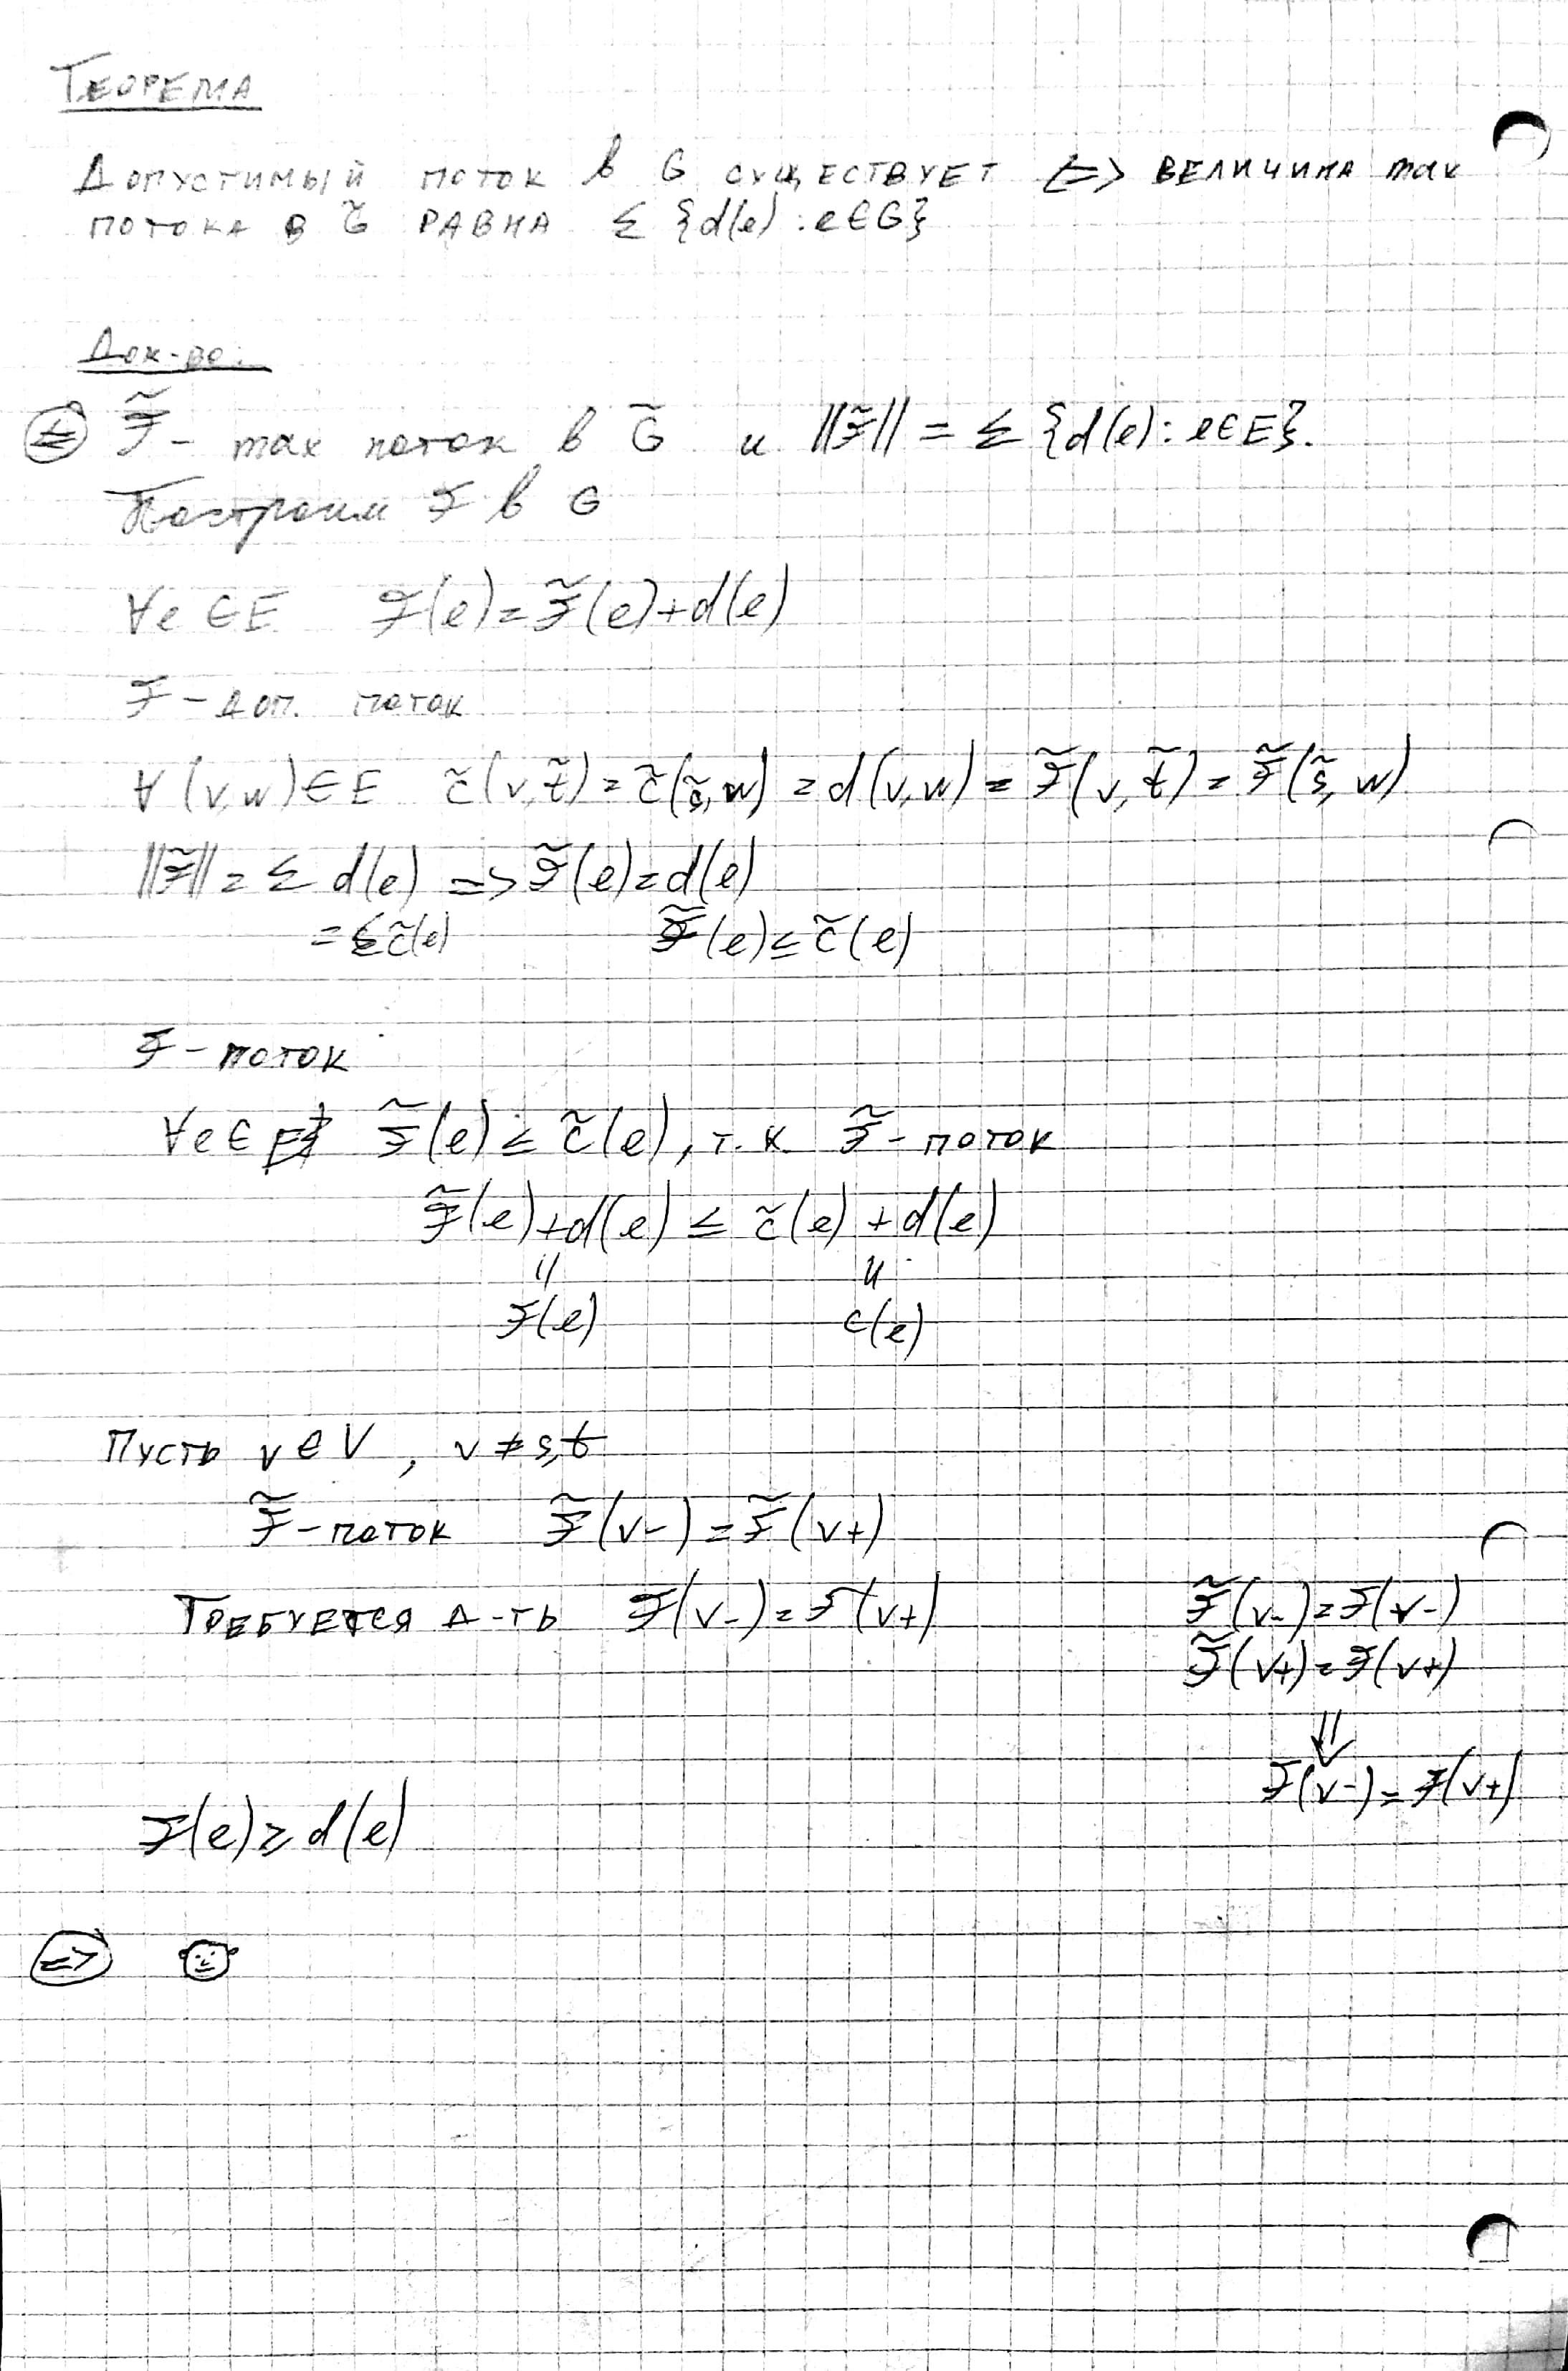 ТЕОРЕМА
ДОПУСТИМЫЙ ПОТОК В G СУЩЕСТВУЕТ <=> ВЕЛИЧИНА max
ПОТОКА В G̃ РАВНА Σ {d(e) : e∈G}
Док-во:
<= F̃ - max поток в G̃ и ||F̃|| = Σ {d(e) : e∈E}.
Построим F в G
∀e∈E F(e) = F̃(e)+d(e)
F - доп. поток
∀(v,w)∈E c̃(v,t̃) = c̃(s̃,w) = d(v,w) = F̃(v,t̃) = F̃(s̃,w)
||F̃|| = Σ d(e) => F̃(e) = d(e)
= Σ c̃(e) F̃(e) ≤ c̃(e)
F - поток
∀e∈E F̃(e) ≤ c̃(e), т.к. F̃ - поток
F̃(e)+d(e) ≤ c̃(e)+d(e)
|| ||
F(e) c(e)
Пусть v∈V, v≠s,t
F̃ - поток F̃(v-) = F̃(v+)
Требуется д-ть F(v-) = F(v+)
F̃(v-) = F(v-)
F̃(v+) = F(v+)
⇓
F(v-) = F(v+)
F(e) ≥ d(e)
=>